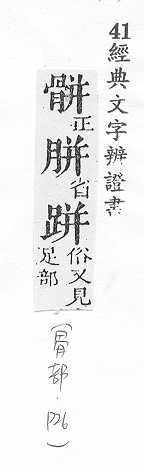 41經典文字辨證書
骿正
胼省
跰俗又見足部
(骨部.P26)